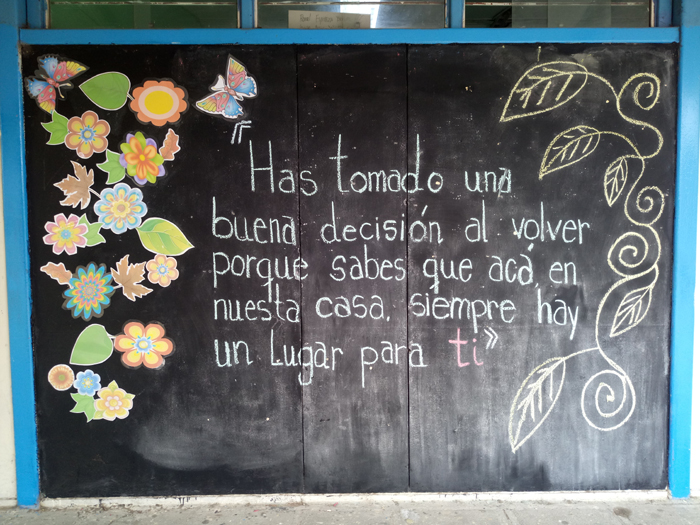 "Has tomado una
buena decisión al volver
porque sabes que acá, en
nuesta casa, siempre hay
un Lugar para ti"